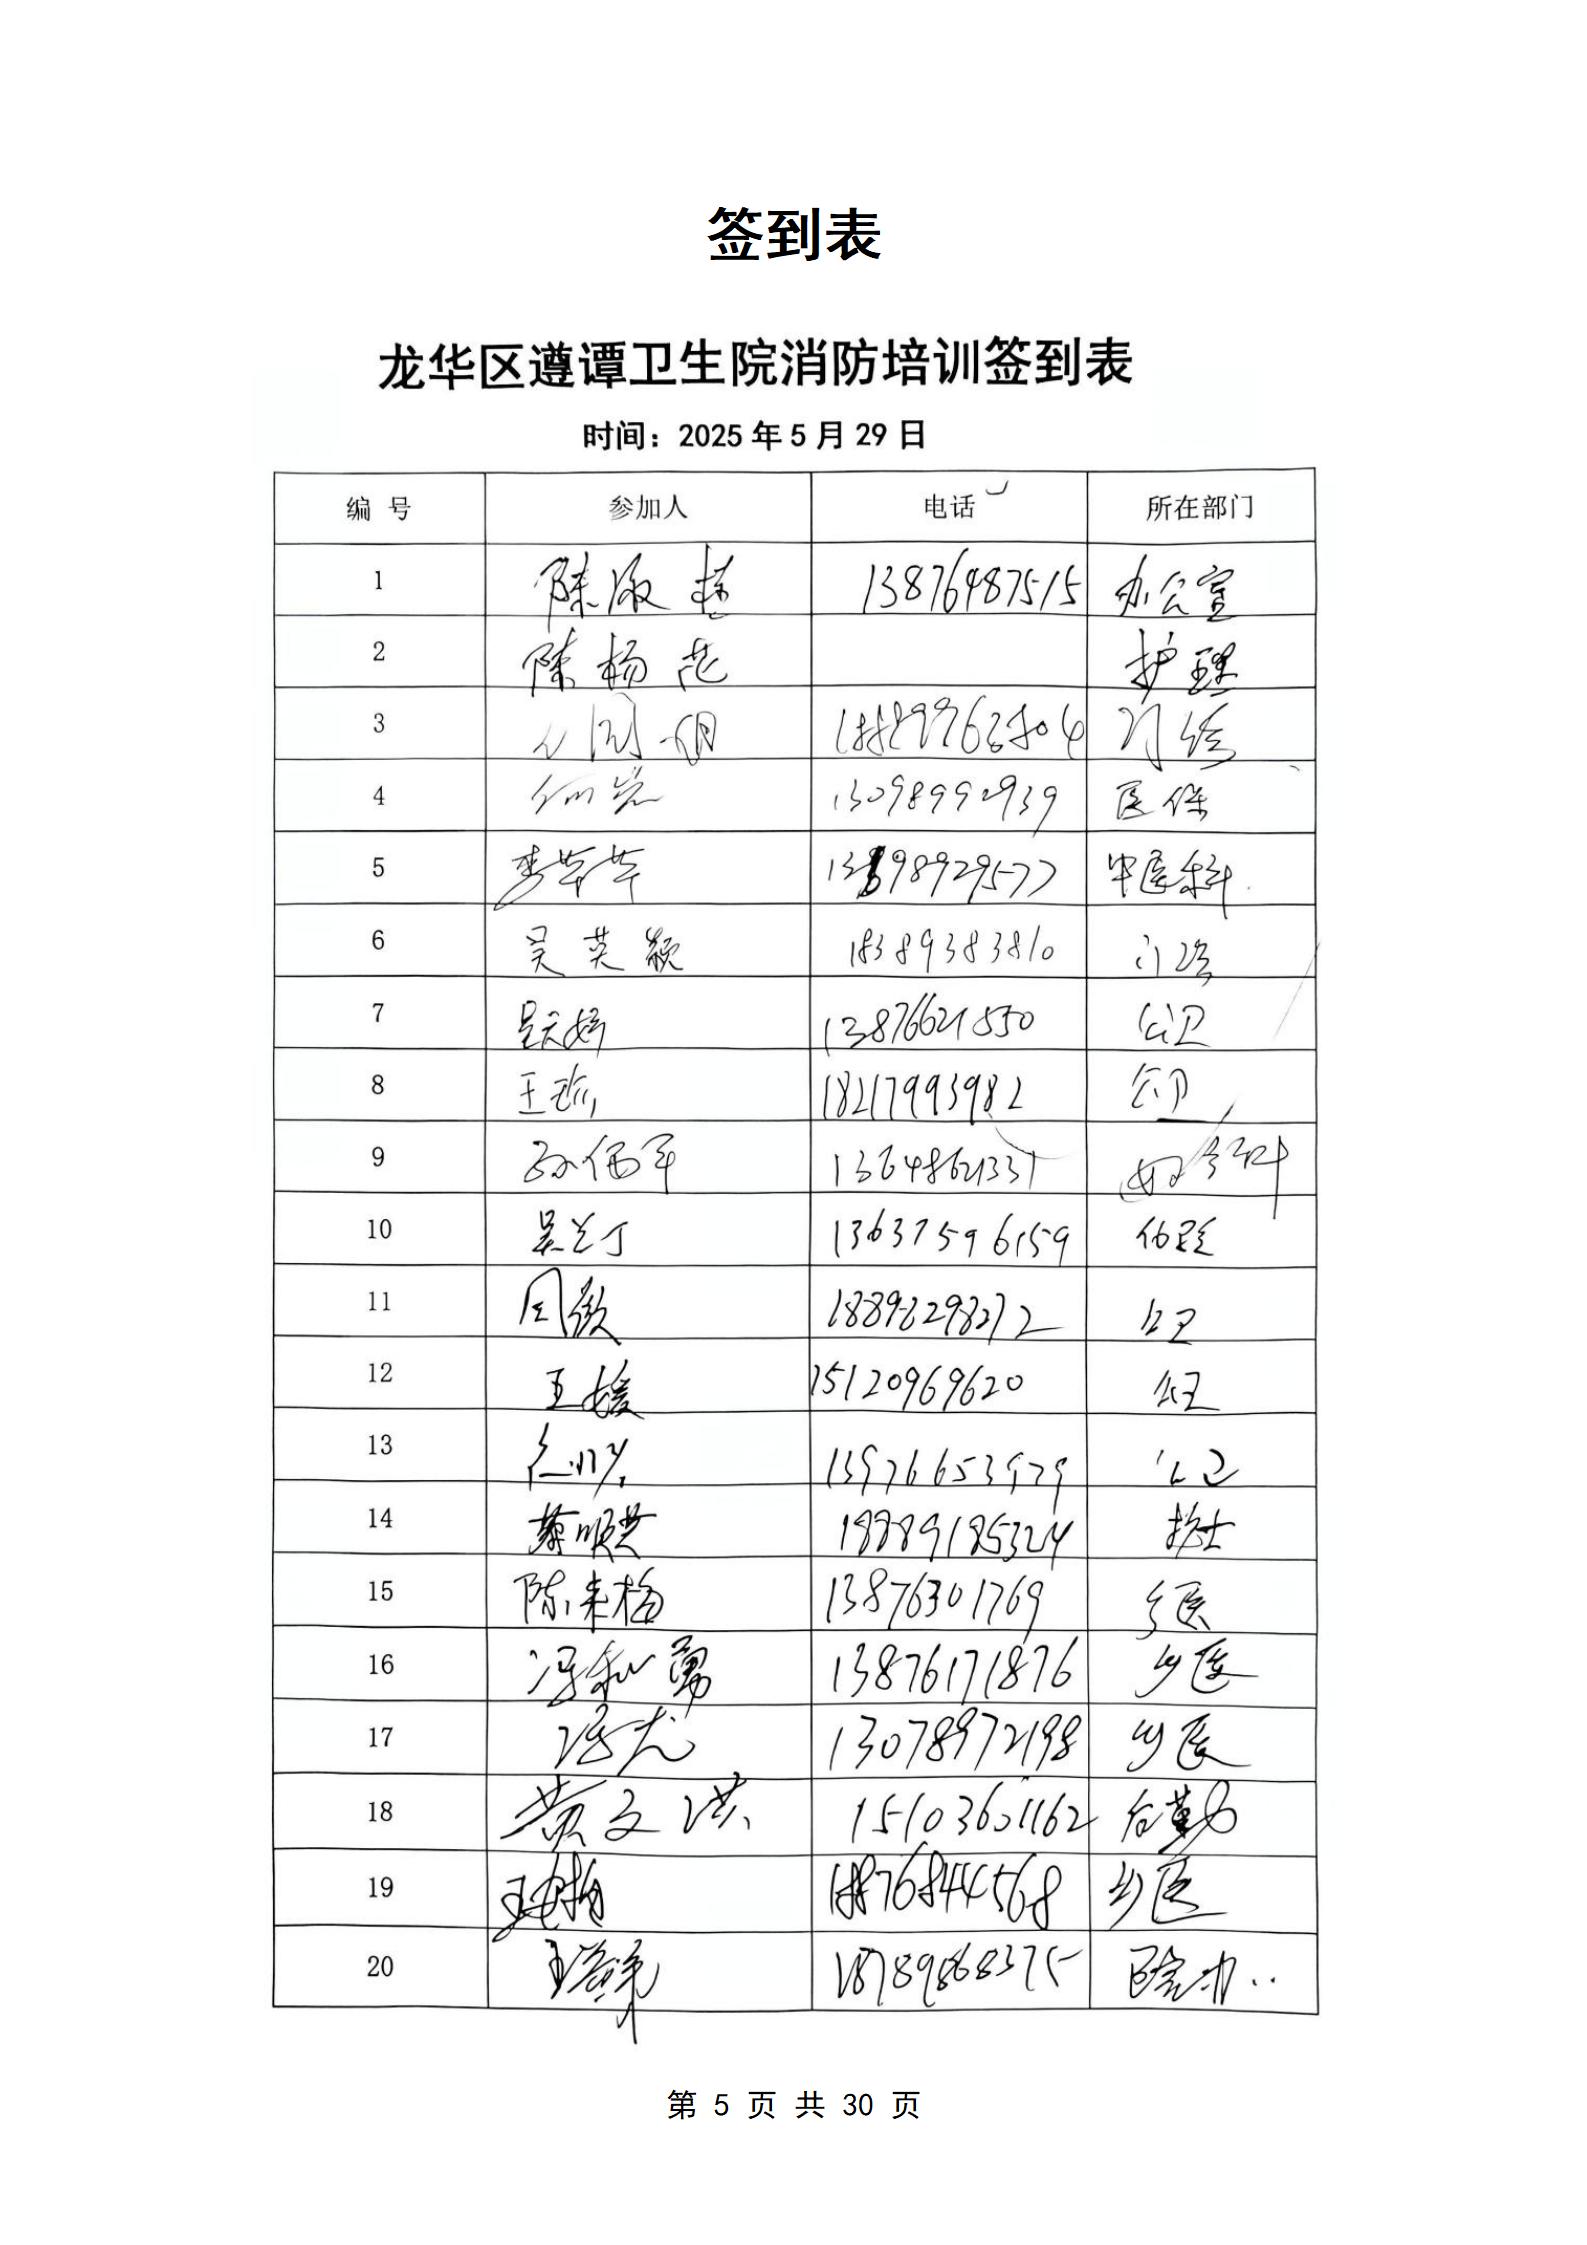 签到表
龙华区遵谭卫生院消防培训签到表
时间：2025年5月29日
编 号 参加人 电话 所在部门
1 陈 13876487515 办公室
2 陈杨 护理
3 门诊
4 13098992939 医保
5 李苹苹 中医科
6 吴英颖 18389383810 门诊
7 吴天娇 13876621550 公卫
8 王珍 18217993982 公卫
9 孙伟军 13648621331
10 吴兰丁 13637596159
11 周薇 公卫
12 王媛 15120969620 公卫
13 13976653979 公卫
14 18889185324 护士
15 陈来梅 13876301769 乡医
16 冯和勇 13876171876 乡医
17 冯尤 13078972198 乡医
18 黄文洪 15103601162 后勤
19 王 18876844568 乡医
20 王 18789868375
第 5 页 共 30 页